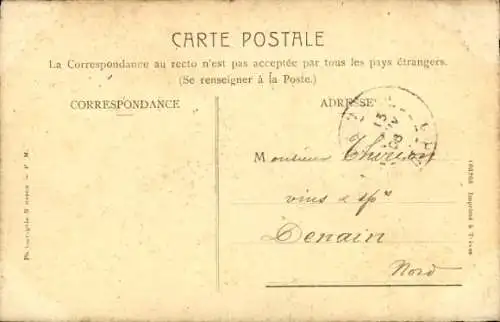 CARTE POSTALE
La Correspondance au recto n'est pas acceptée par tous les pays étrangers.
(Se renseigner à la Poste.)
CORRESPONDANCE
ADRESSE
Monsieur
vins & spx
Denain
Nord
Imprimé à Trèves